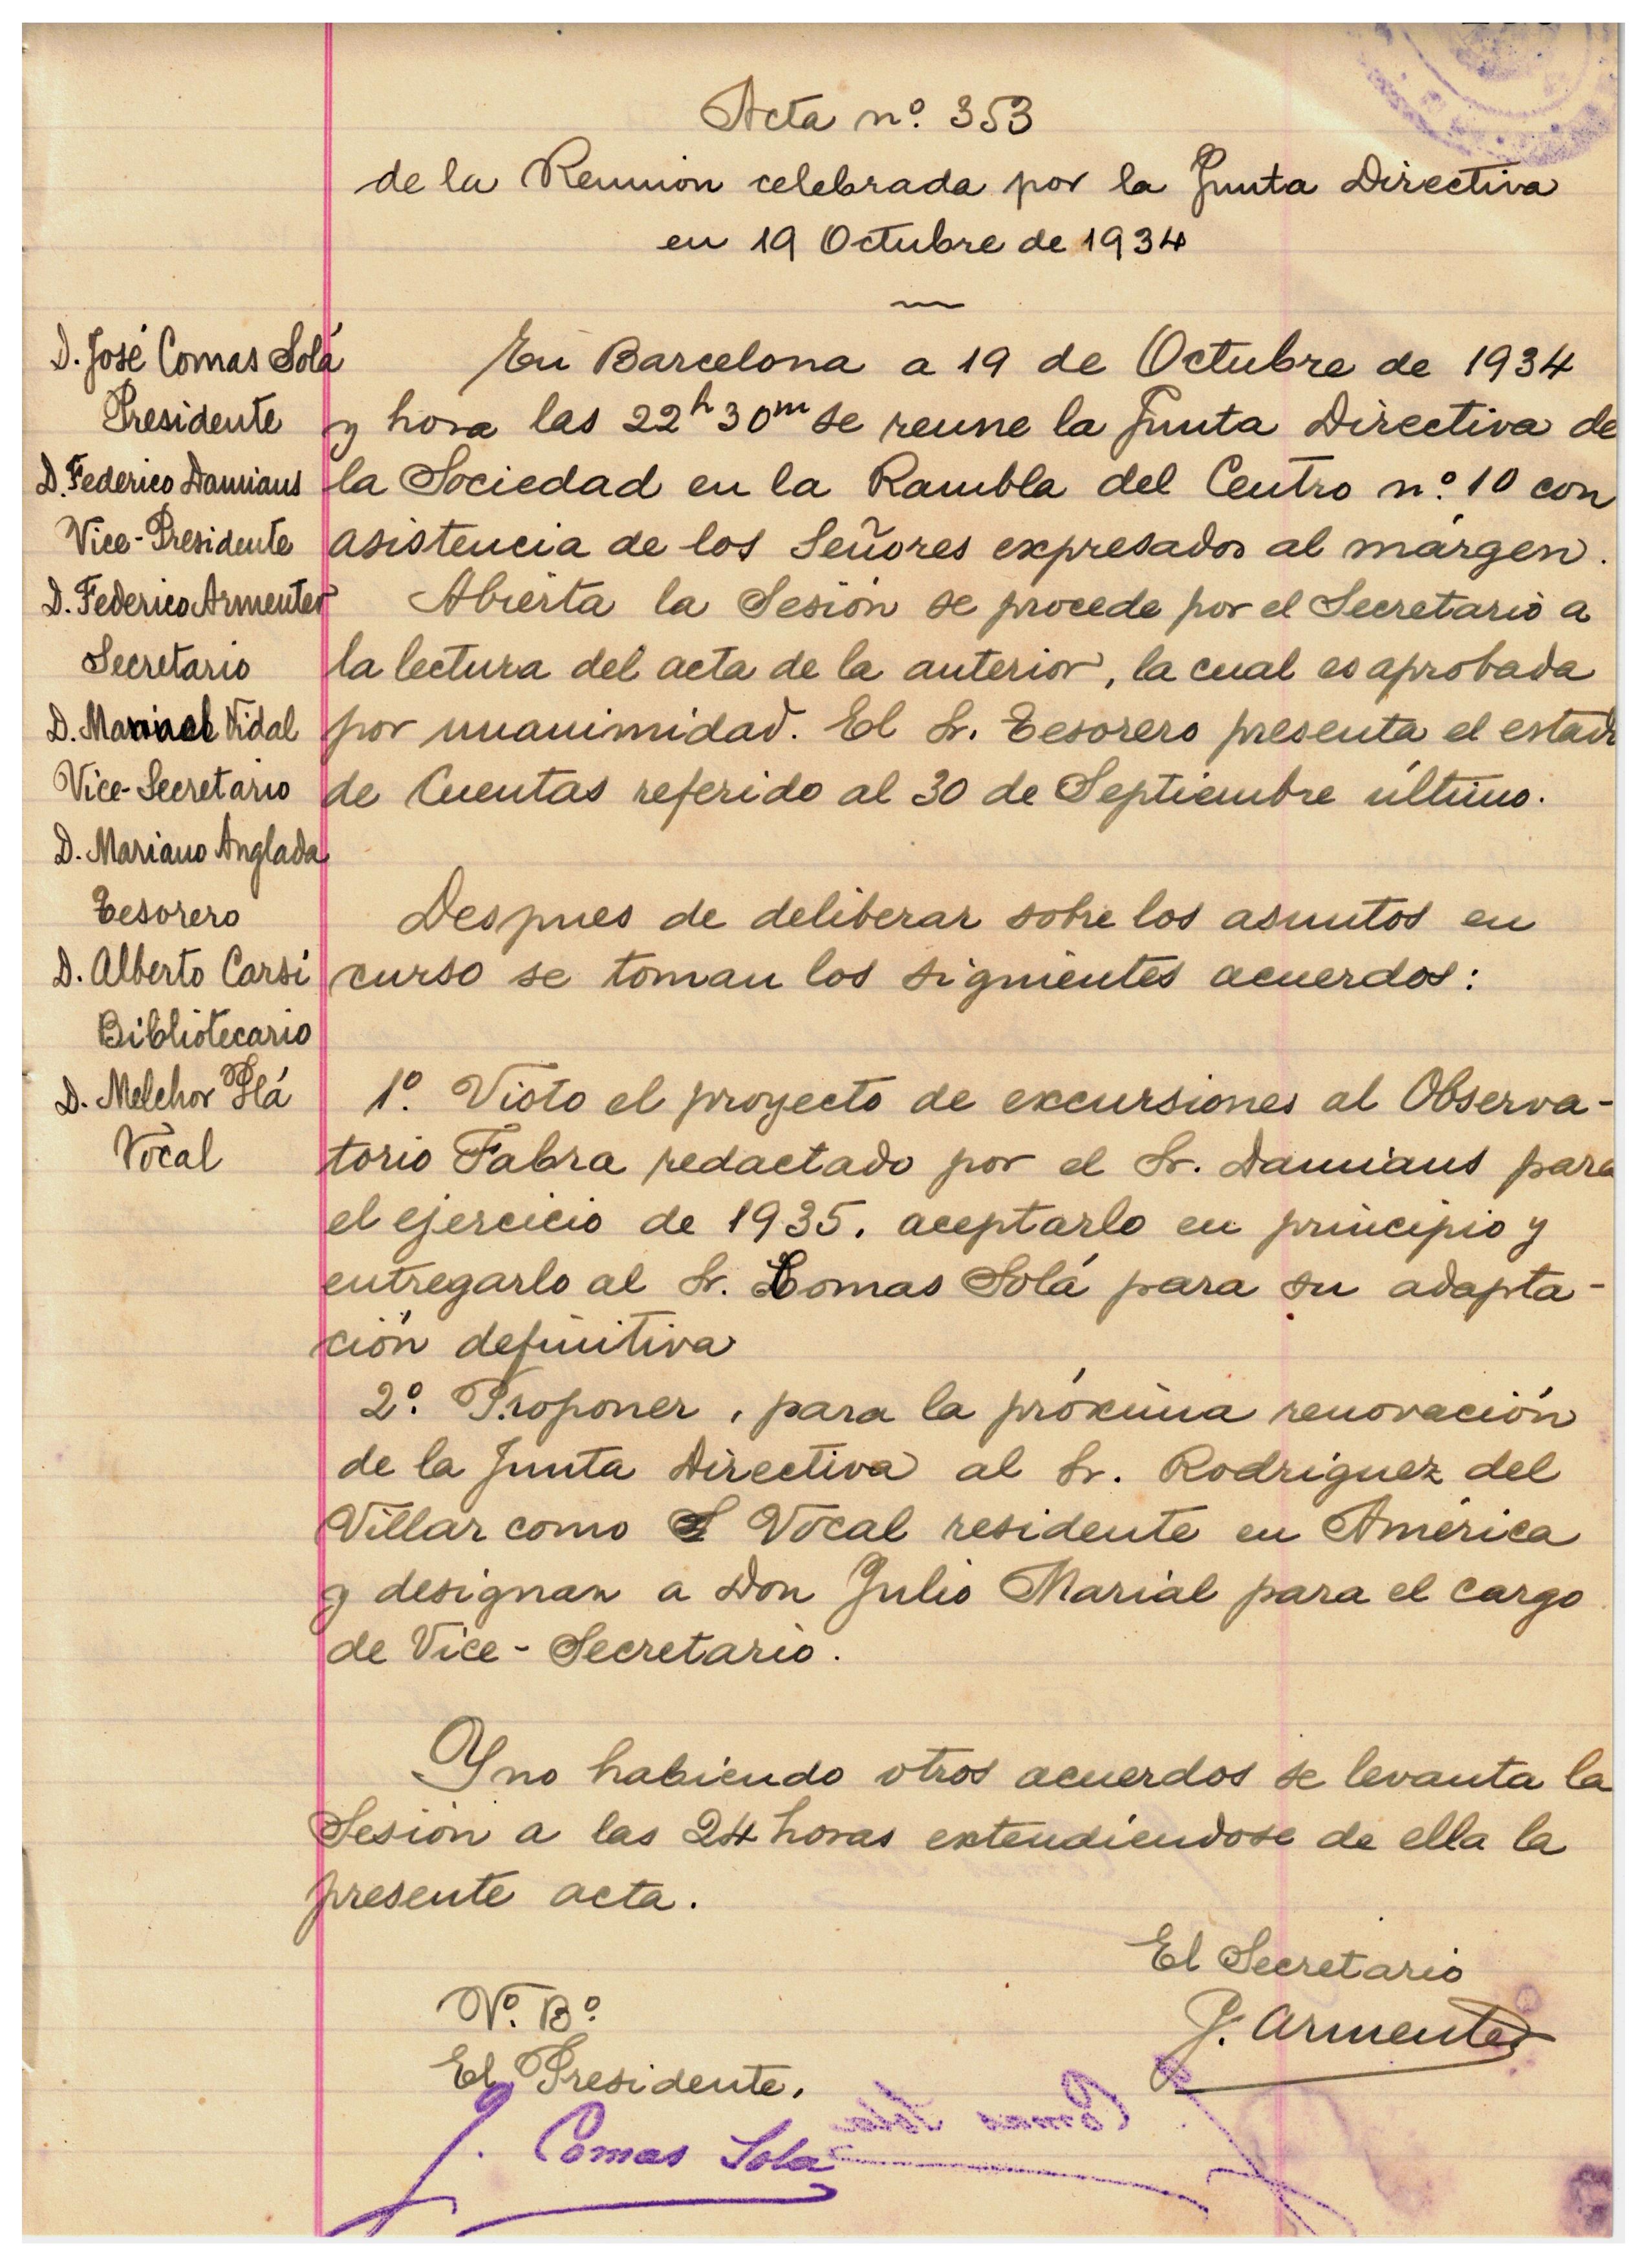 Acta nº. 353
de la Reunion celebrada por la Junta Directiva
en 19 Octubre de 1934
D. José Comas Solá
Presidente
D. Federico Damians
Vice-Presidente
D. Federico Armenter
Secretario
D. Manuel Vidal
Vice-Secretario
D. Mariano Anglada
Tesorero
D. Alberto Carsi
Bibliotecario
D. Melchor Plá
Vocal
En Barcelona a 19 de Octubre de 1934
y hora las 22h 30m se reune la Junta Directiva de
la Sociedad en la Rambla del Centro nº. 10 con
asistencia de los Señores expresados al márgen.
Abierta la Sesión se procede por el Secretario a
la lectura del acta de la anterior, la cual es aprobada
por unanimidad. El Sr. Tesorero presenta el estado
de Cuentas referido al 30 de Septiembre último.
Despues de deliberar sobre los asuntos en
curso se toman los siguientes acuerdos:
1º. Visto el proyecto de excursiones al Observa-
torio Fabra redactado por el Sr. Damians para
el ejercicio de 1935, aceptarlo en principio y
entregarlo al Sr. Comas Solá para su adapta-
ción definitiva
2º. Proponer, para la próxima renovación
de la Junta Directiva al Sr. Rodriguez del
Villar como Vocal residente en América
y designan a Don Julio Marial para el cargo
de Vice-Secretario.
Y no habiendo otros acuerdos se levanta la
Sesión a las 24 horas extendiéndose de ella la
presente acta.
El Secretario
F. Armenter
Vº. Bº.
El Presidente,
J. Comas Solá